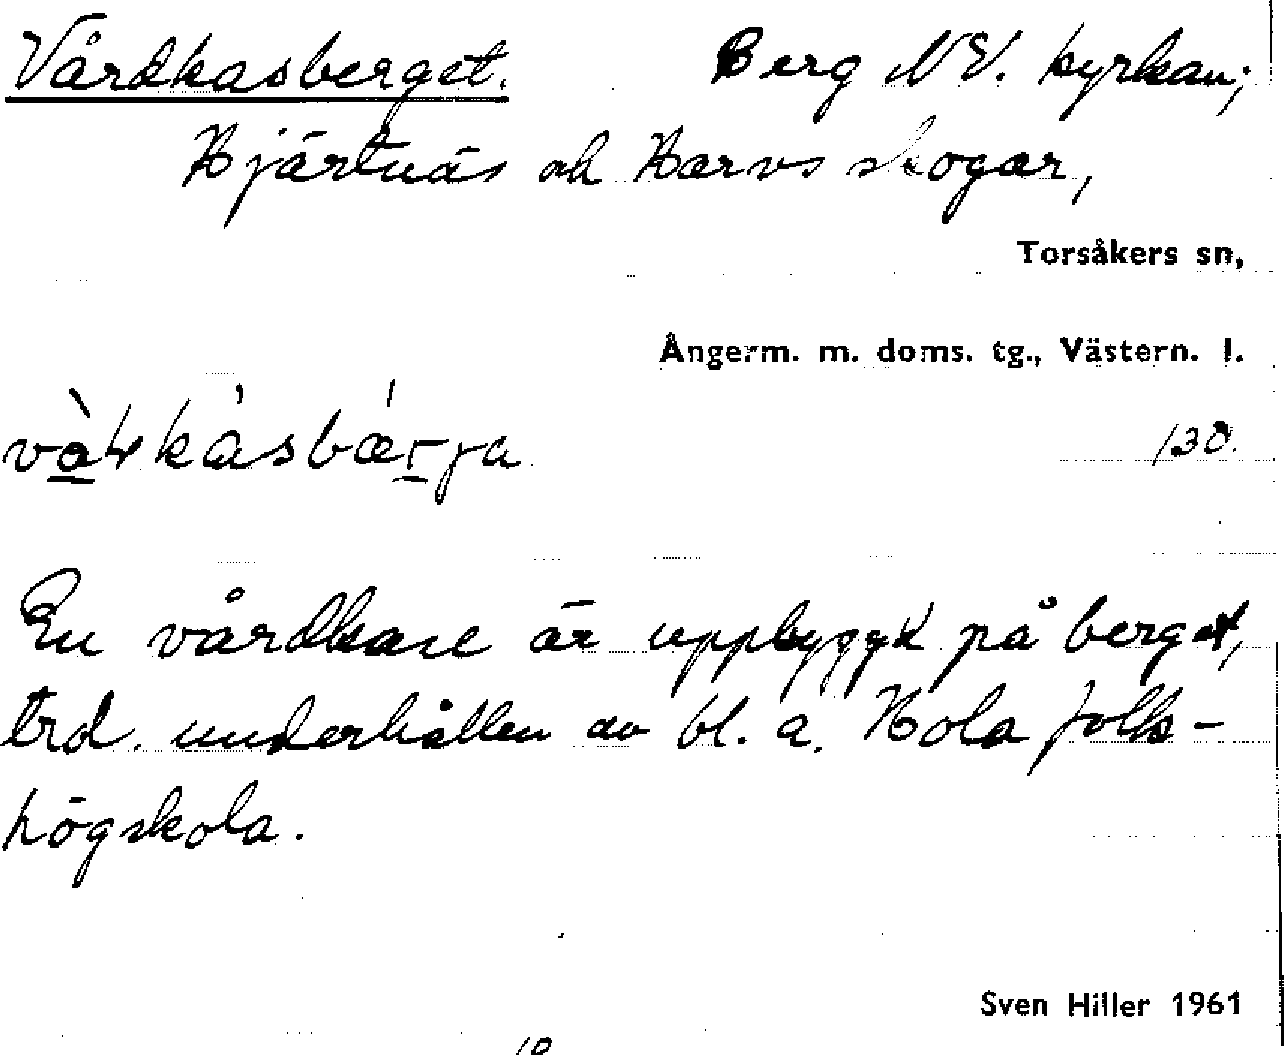 Vårdkasberget. Berg NV. kyrkan;
Hjärtnäs och Harvs skogar,
Torsåkers sn,
Ångerm. m. doms. tg., Västern. l.
130.
En vårdkase är uppbyggd på berget,
trd. underhållen av bl. a. Hola folk-
högskola.
Sven Hiller 1961
10